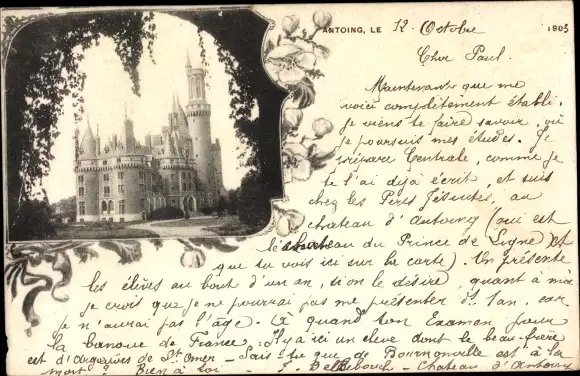 ANTOING, LE 12 Octobre 1905
Cher Paul.
Maintenant que me
voici complètement établi.
je viens te faire savoir, où
je poursuis mes études. Je
prépare Centrale, comme je
te l'ai déjà écrit, et suis
chez les Pères Jésuites, au
château d'Antoing (qui est
le château du Prince de Ligne) et
que tu vois ici sur la carte). On présente
les élèves au bout d'un an, si on le désire, quant à moi
je crois que je ne pourrai pas me présenter ds 1 an, car
je n'aurai pas l'âge. A quand ton Examen pour
la banque de France? Il y a ici un élève dont le beau-frère
est d'Argœuves de St Omer - Sais-tu que de Bournonville est à la
mort? Bien à toi - J. - Château d'Antoing